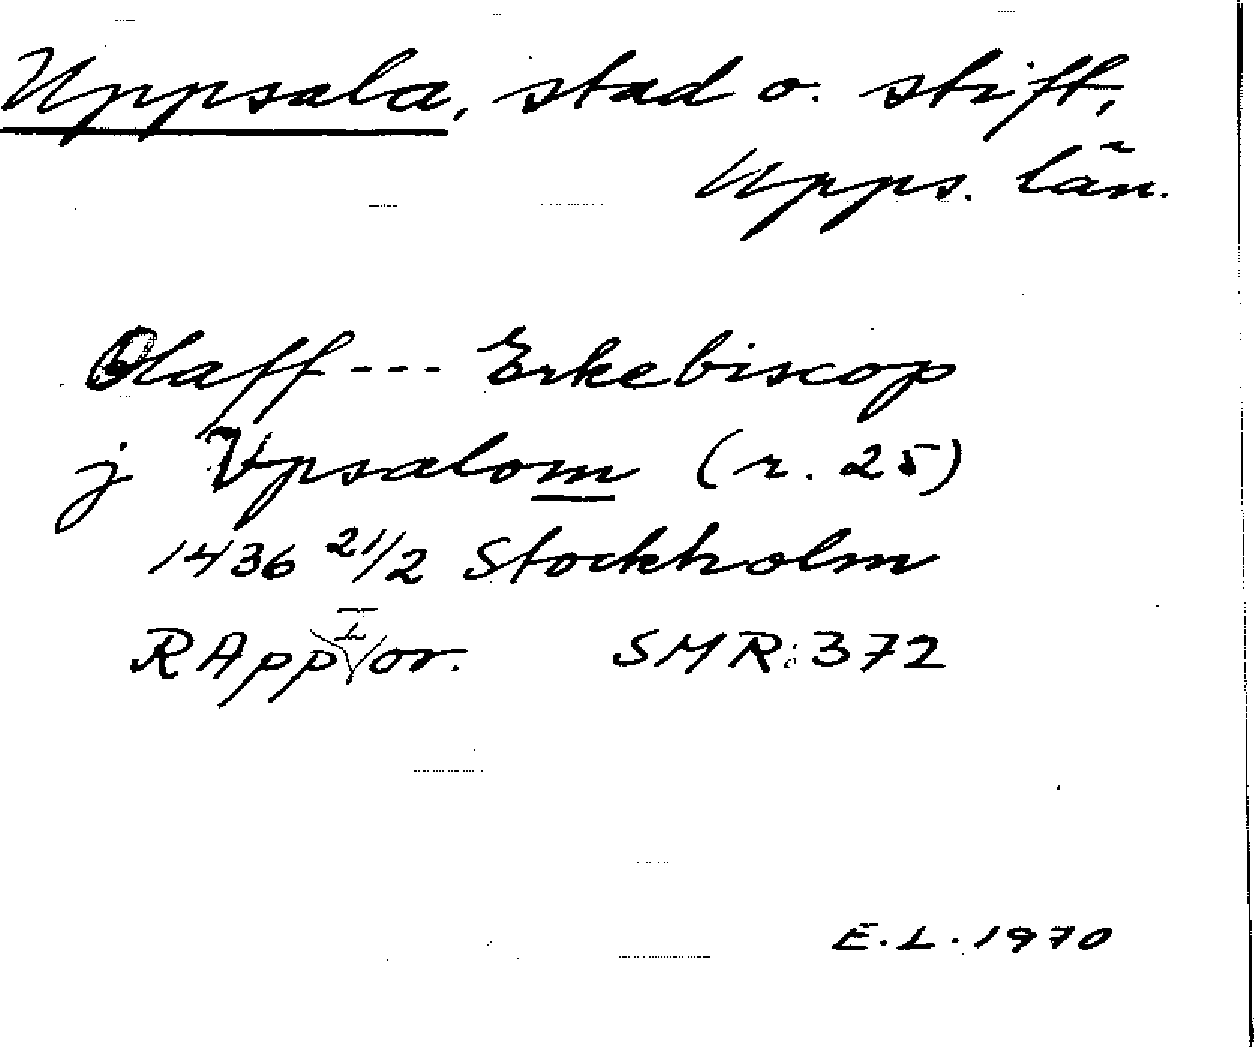 Uppsala, stad o. stift,
Upps. län.
Olaff --- Erkebiscop
j Vpsalom (r. 25)
1436 21/2 Stockholm
RApp I or. SMR: 372
E.L. 1970